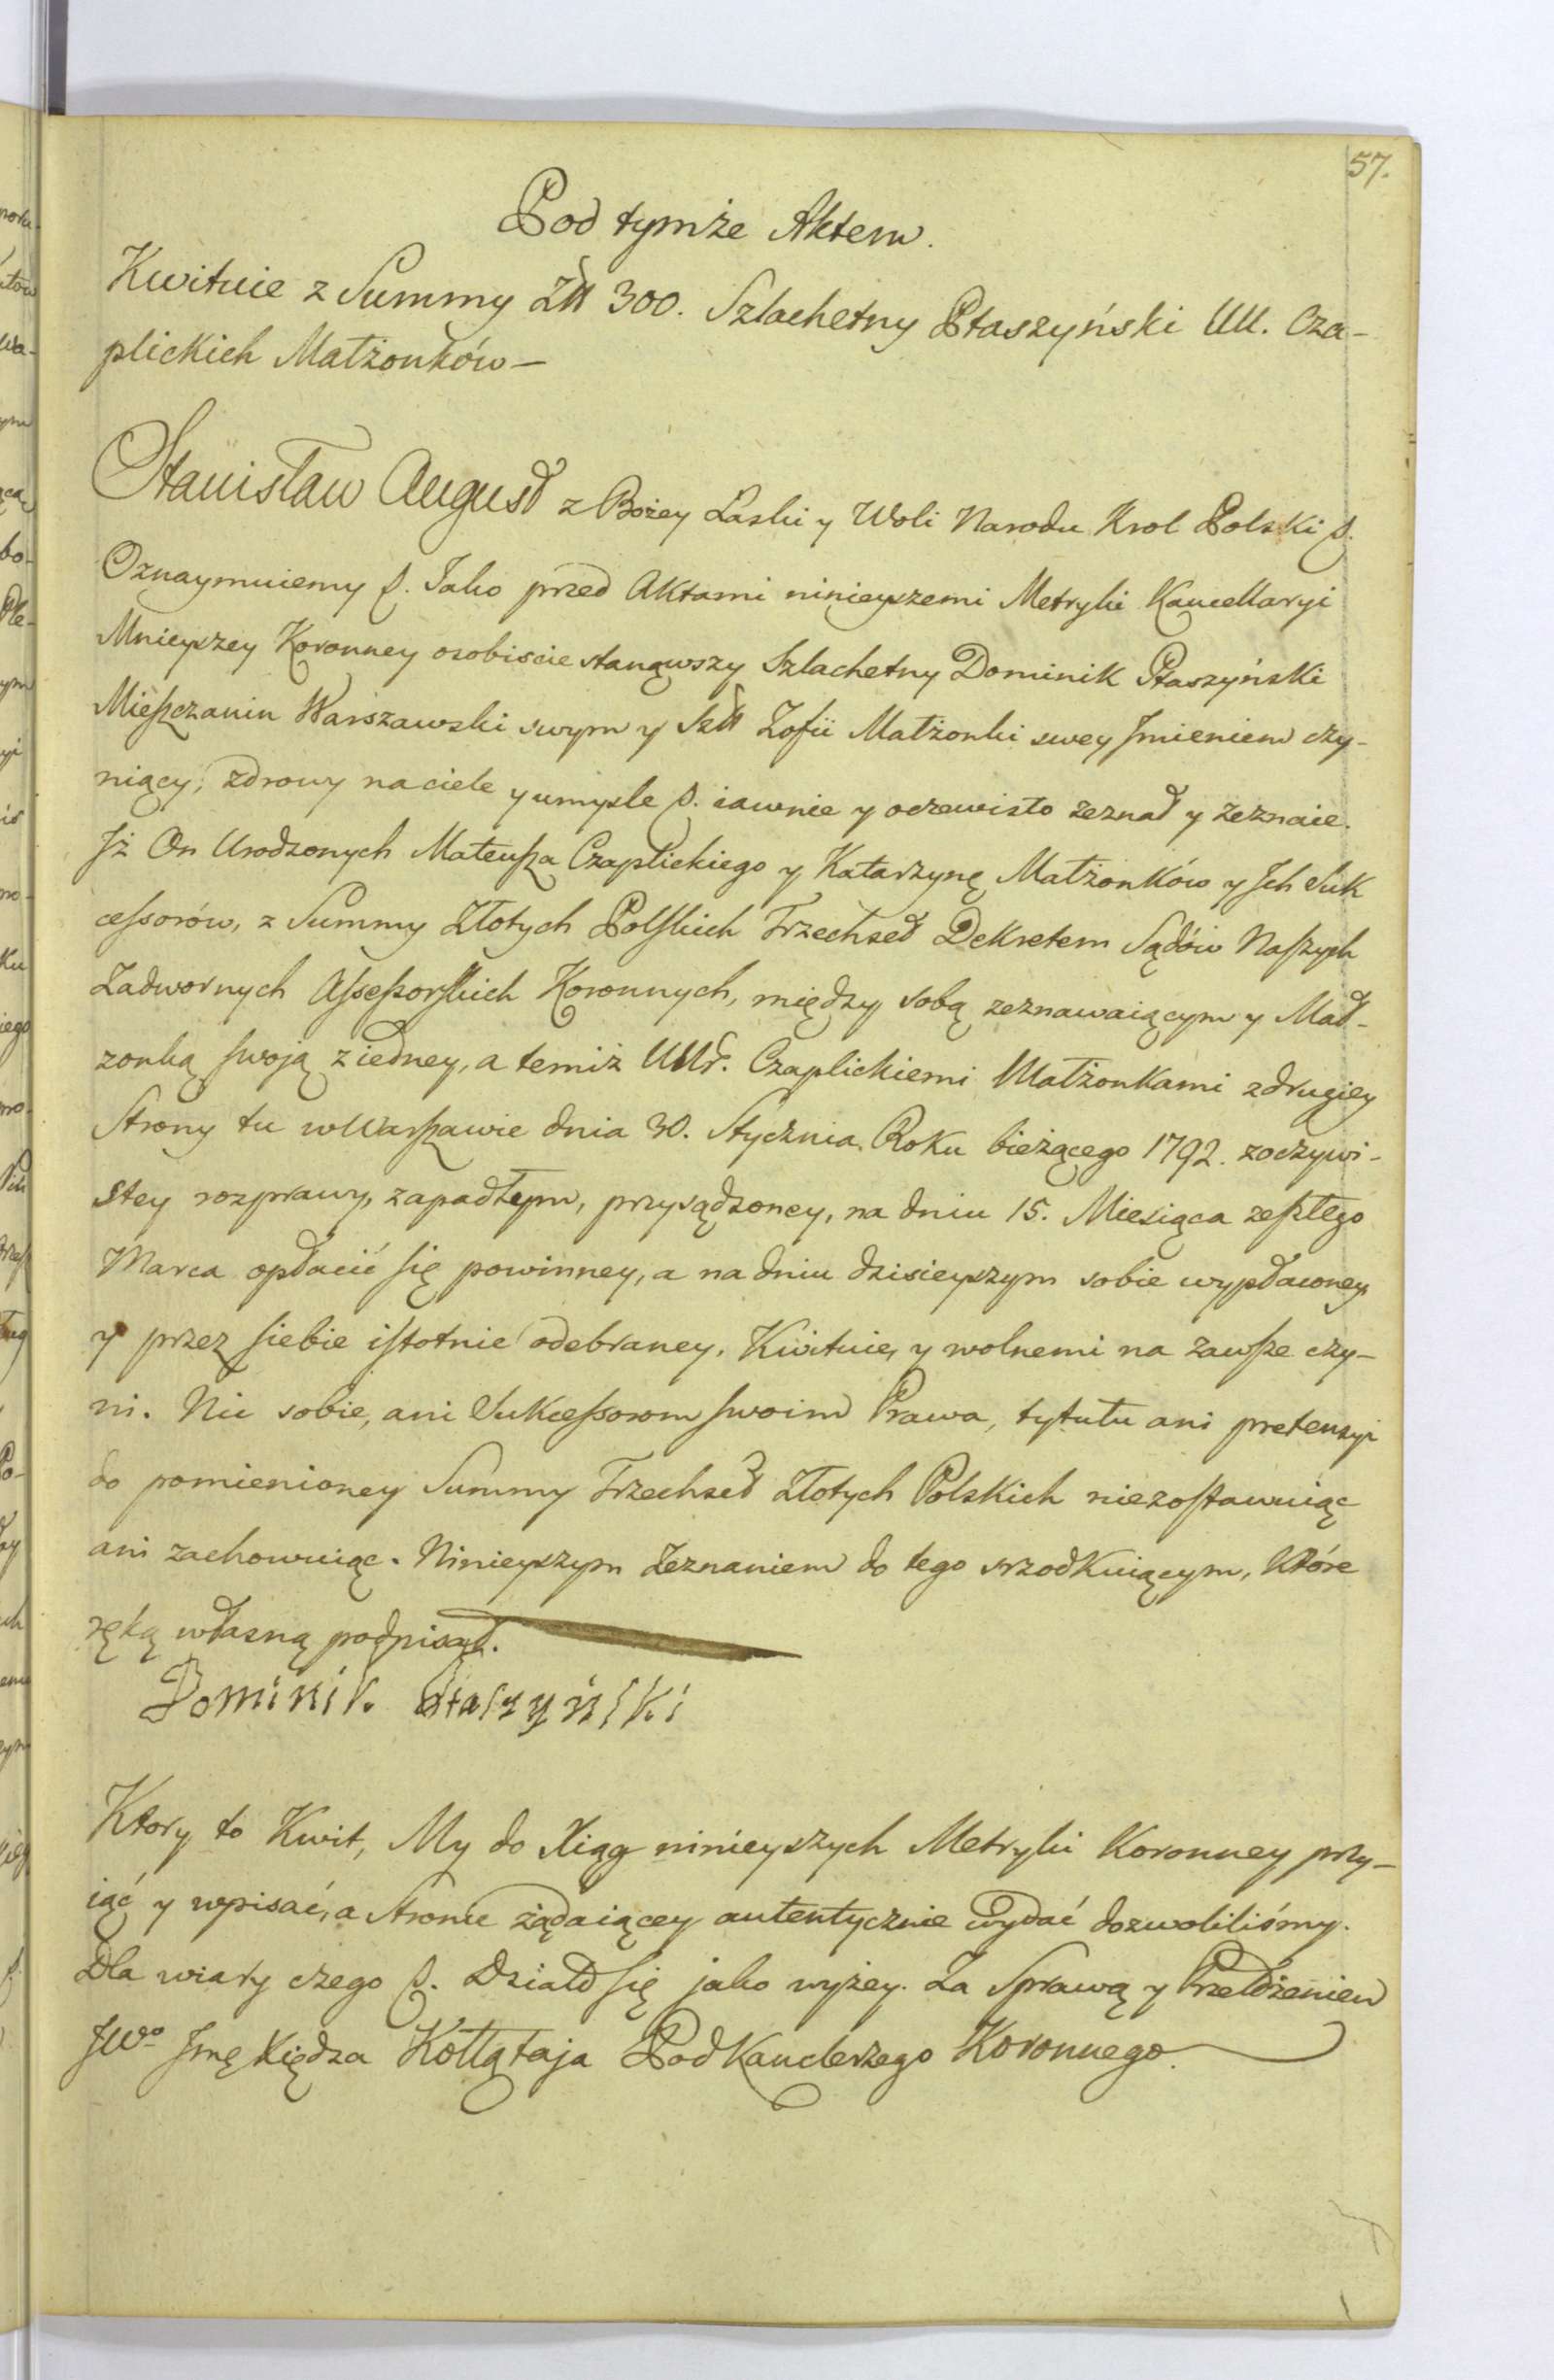 57.
Pod tymże Aktem.
Kwituie z Summy Złł 300. Szlachetny Ptaszyński UU. Cza-
plickich Małżonków—
Stanisław August z Bożey Łaski y Woli Narodu Krol Polski &.
Oznaymuiemy &. Jako przed Aktami ninieyszemi Metryki Kancellaryi
Mnieyszey Koronney osobiscie stanąwszy Szlachetny Dominik Ptaszyński
Mieszczanin Warszawski swym y Szł Zofii Małżonki swey Jmieniem czy-
niący, zdrowy na ciele y umysle &. iawnie y oczewisto zeznał y zeznaie.
Jż On Urodzonych Mateusza Czaplickiego y Katarzynę Małżonków y Jch Suk
cessorów, z Summy Złotych Polskich Trzechset Dekretem Sądów Naszych
Zadwornych Assessorskich Koronnych, między sobą zeznawaiącym y Mał-
zonką swoją z iedney, a temiż UUr. Czaplickiemi Małżonkami z drugiey
Strony tu w Warszawie dnia 30. Stycznia Roku bieżącego 1792. z oczywi-
stey rozprawy zapadłym, przysądzoney, na dniu 15. Miesiąca zeszłego
Marca opłacić się powinney, a na dniu dzisieyszym sobie wypłaconey
y przez siebie istotnie odebraney, Kwituie, y wolnemi na zawsze czy-
ni. Nic sobie, ani Sukcessorom swoim Prawa, tytułu ani pretensyi
do pomienioney Summy Trzechset Złotych Polskich niezostawuiąc
ani zachowuiąc. Ninieyszym Zeznaniem do tego srzodkuiącym, które
ręką własną podpisał.
Dominik Ptaszyński
Ktory to Kwit, My do Xiąg ninieyszych Metryki Koronney przy-
iąć y wpisać, a Stronie żądaiącey autentycznie wydać dozwoliliśmy.
Dla wiary czego &. Działo się jako wyżey. Za Sprawą y Przełożeniem
JWo Jmę Xiędza Kołłątaja PodKanclerzego Koronnego.